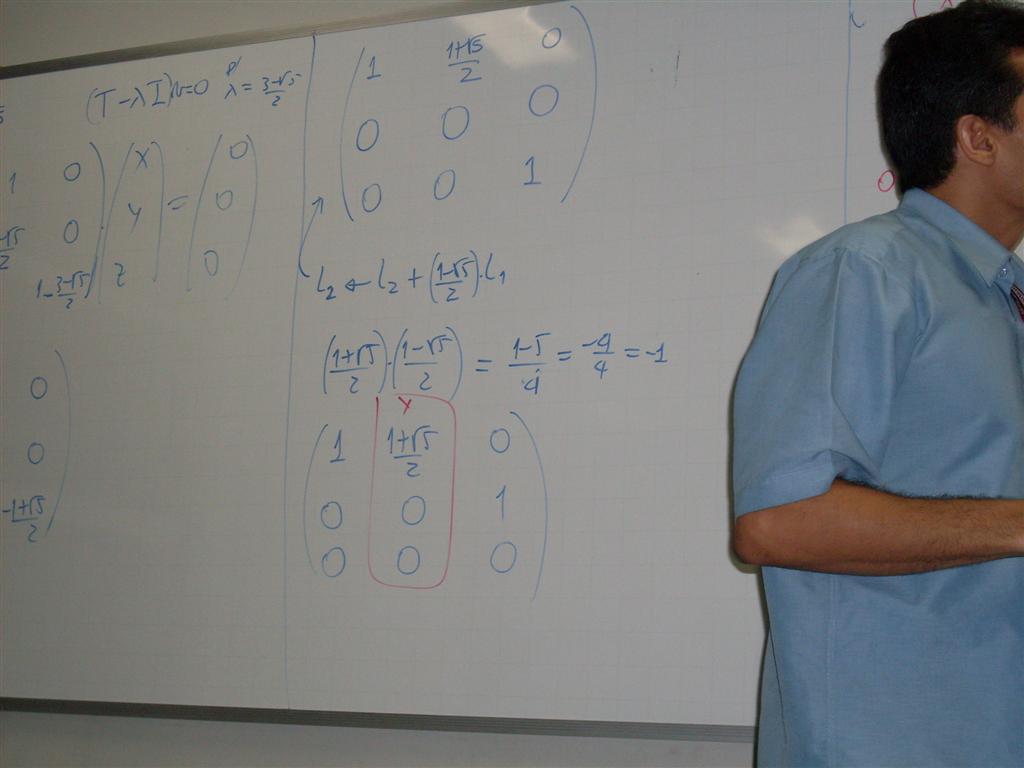 (T - λI)v = 0 p/ λ = (3-√5)/2
1 0
0
1 - (3-√5)/2
(x y z) = (0 0 0)
0
0
(-1+√5)/2
1 (1+√5)/2 0
0 0 0
0 0 1
L2 ← L2 + ((1-√5)/2)·L1
((1+√5)/2)·((1-√5)/2) = (1-5)/4 = -4/4 = -1
y
1 (1+√5)/2 0
0 0 1
0 0 0